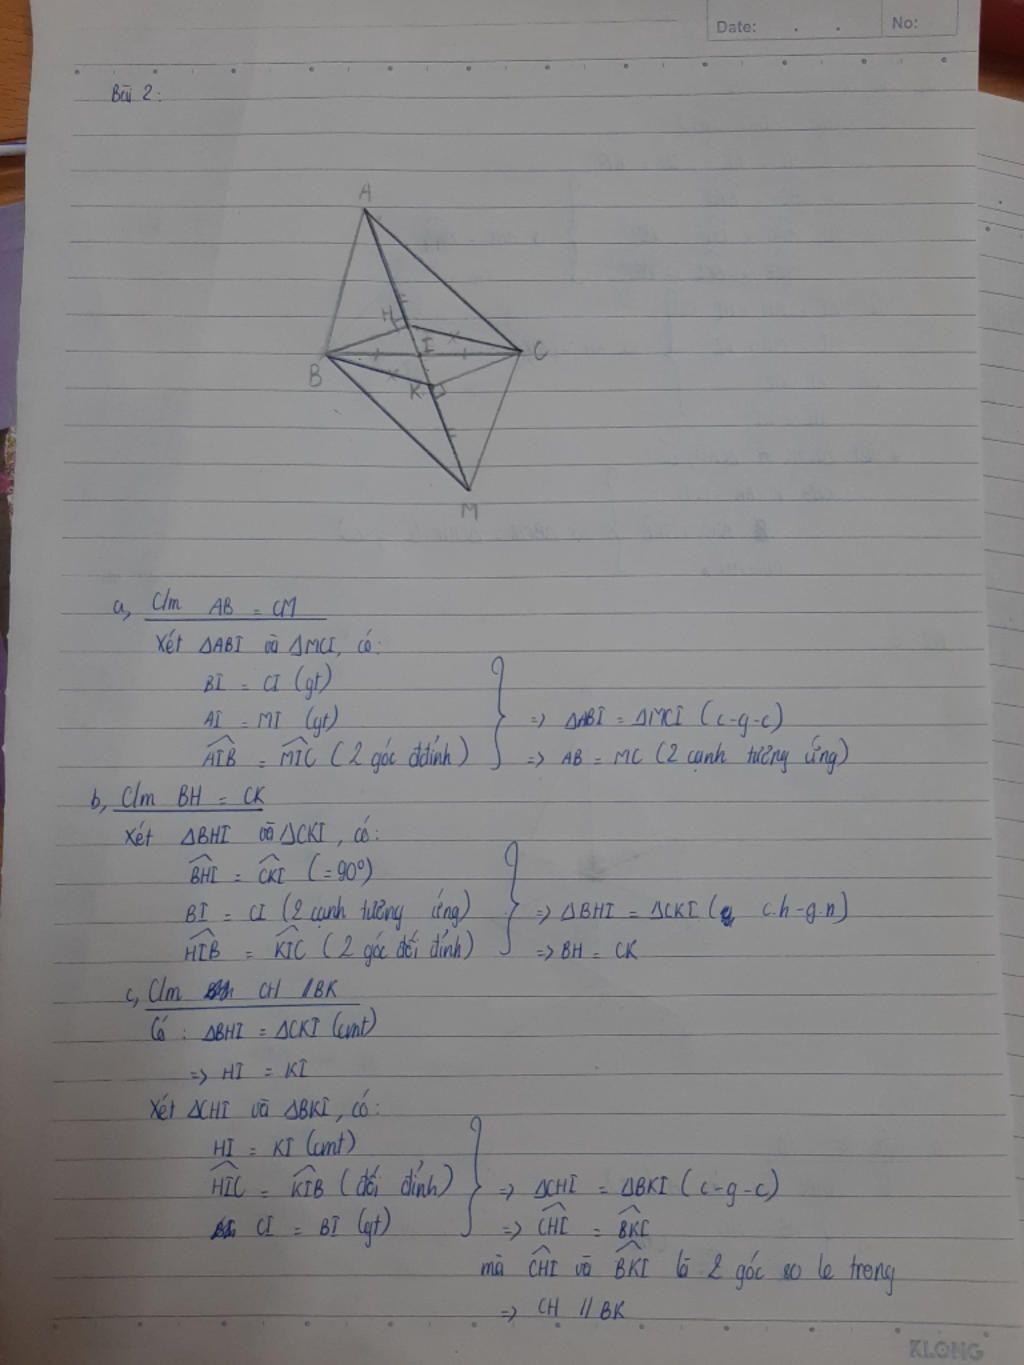 Date: . . No:
Bài 2:
A
H
I
B
C
K
M
a, C/m AB = CM
Xét ΔABI và ΔMCI, có:
BI = CI (gt)
AI = MI (gt) => ΔABI = ΔMCI (c-g-c)
AIB = MIC (2 góc đđỉnh) => AB = MC (2 cạnh tương ứng)
b, C/m BH = CK
Xét ΔBHI và ΔCKI, có:
BHI = CKI (=90°)
BI = CI (2 cạnh tương ứng) => ΔBHI = ΔCKI (c.h-g.n)
HIB = KIC (2 góc đối đỉnh) => BH = CK
c, C/m CH // BK
Có: ΔBHI = ΔCKI (cmt)
=> HI = KI
Xét ΔCHI và ΔBKI, có:
HI = KI (cmt)
HIC = KIB (đối đỉnh) => ΔCHI = ΔBKI (c-g-c)
CI = BI (gt) => CHI = BKI
mà CHI và BKI là 2 góc so le trong
=> CH // BK
KLONG